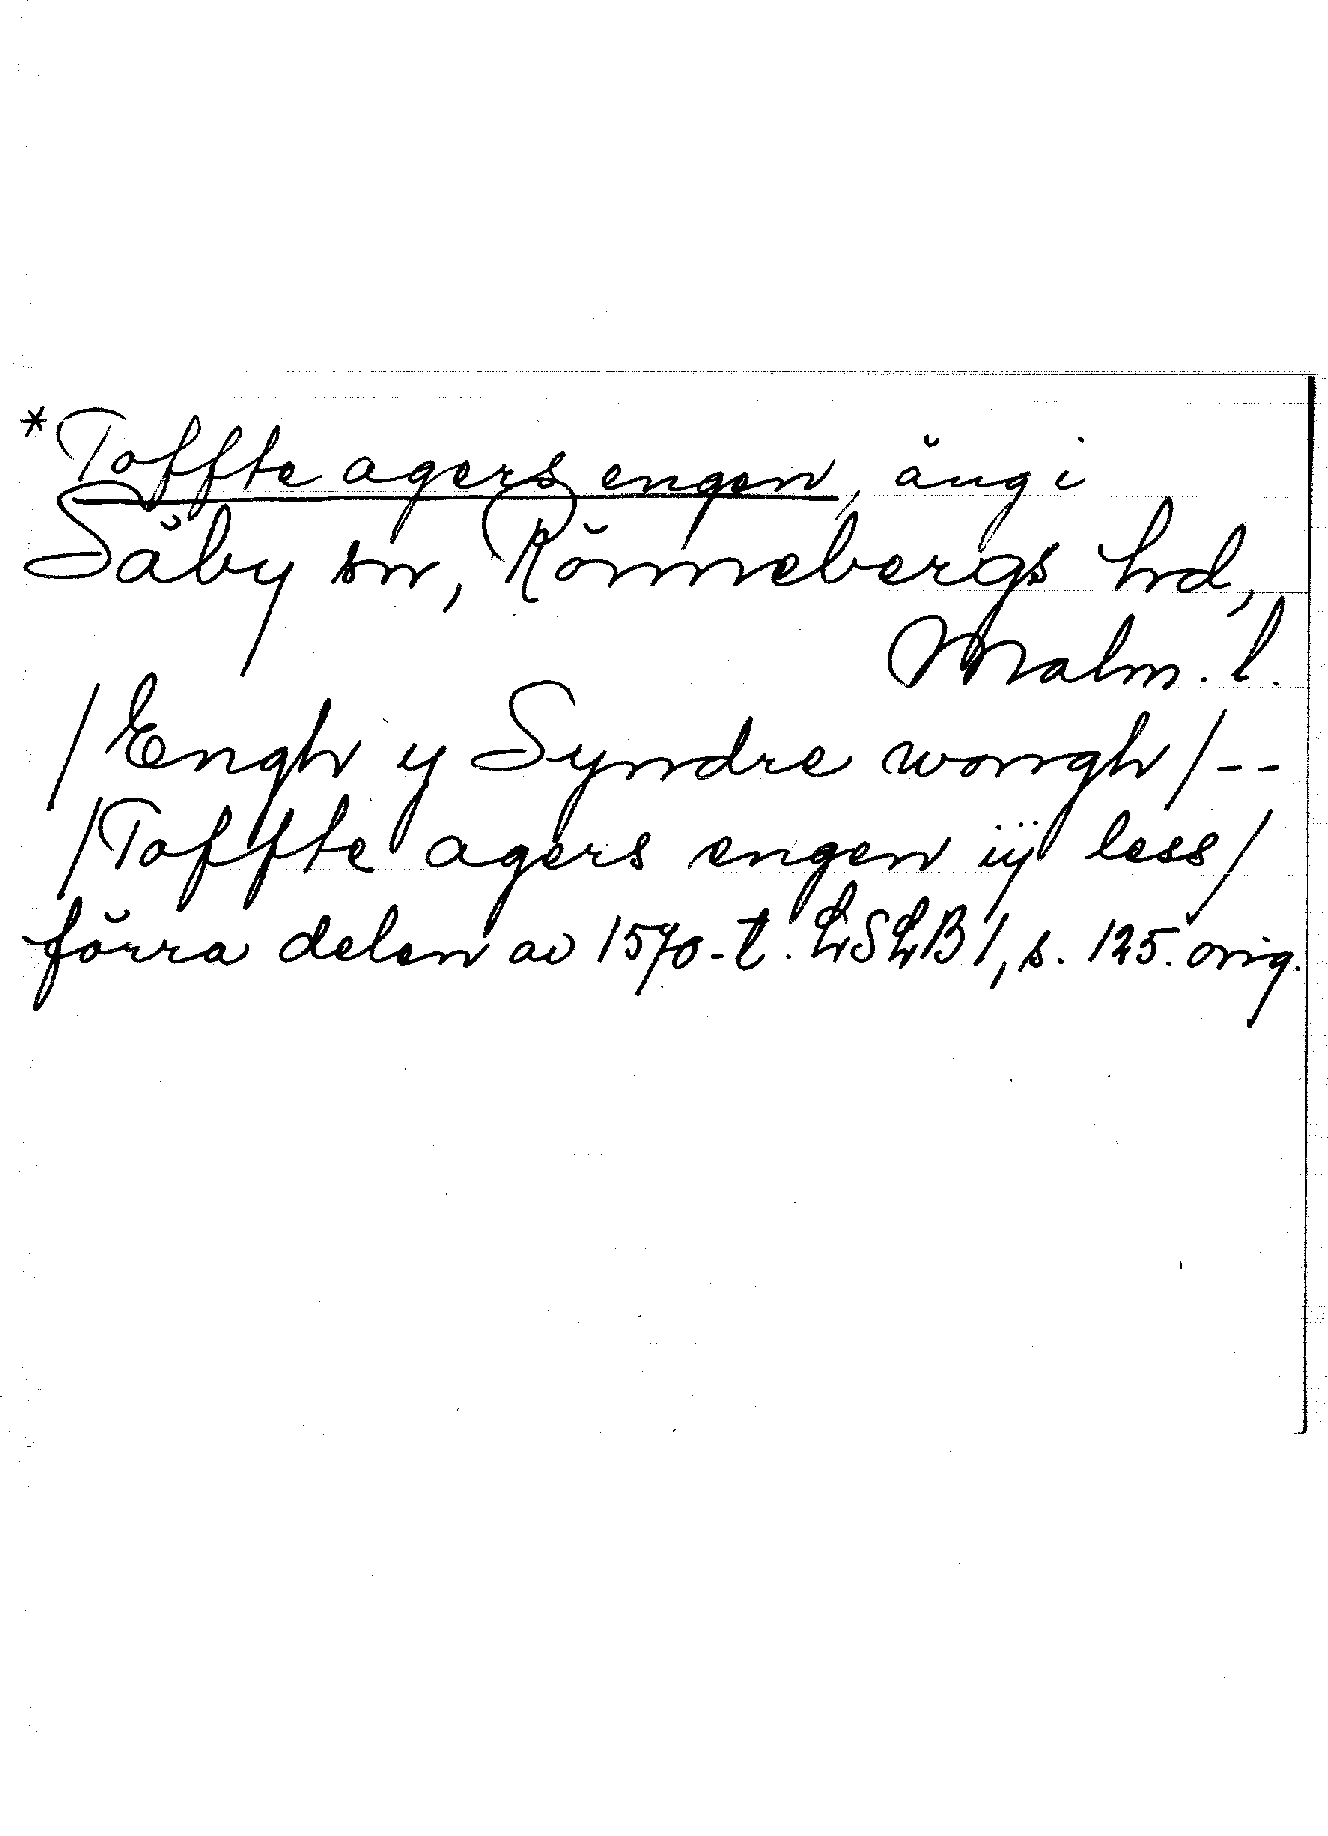 *Toffte agers engen, äng i
Säby sn, Rönnebergs hd,
Malm. l.
/Engh y Syndre wongh/--
/Toffte agers engen iij less/
förra delen av 1570-t. LSLB 1, s. 125. orig.